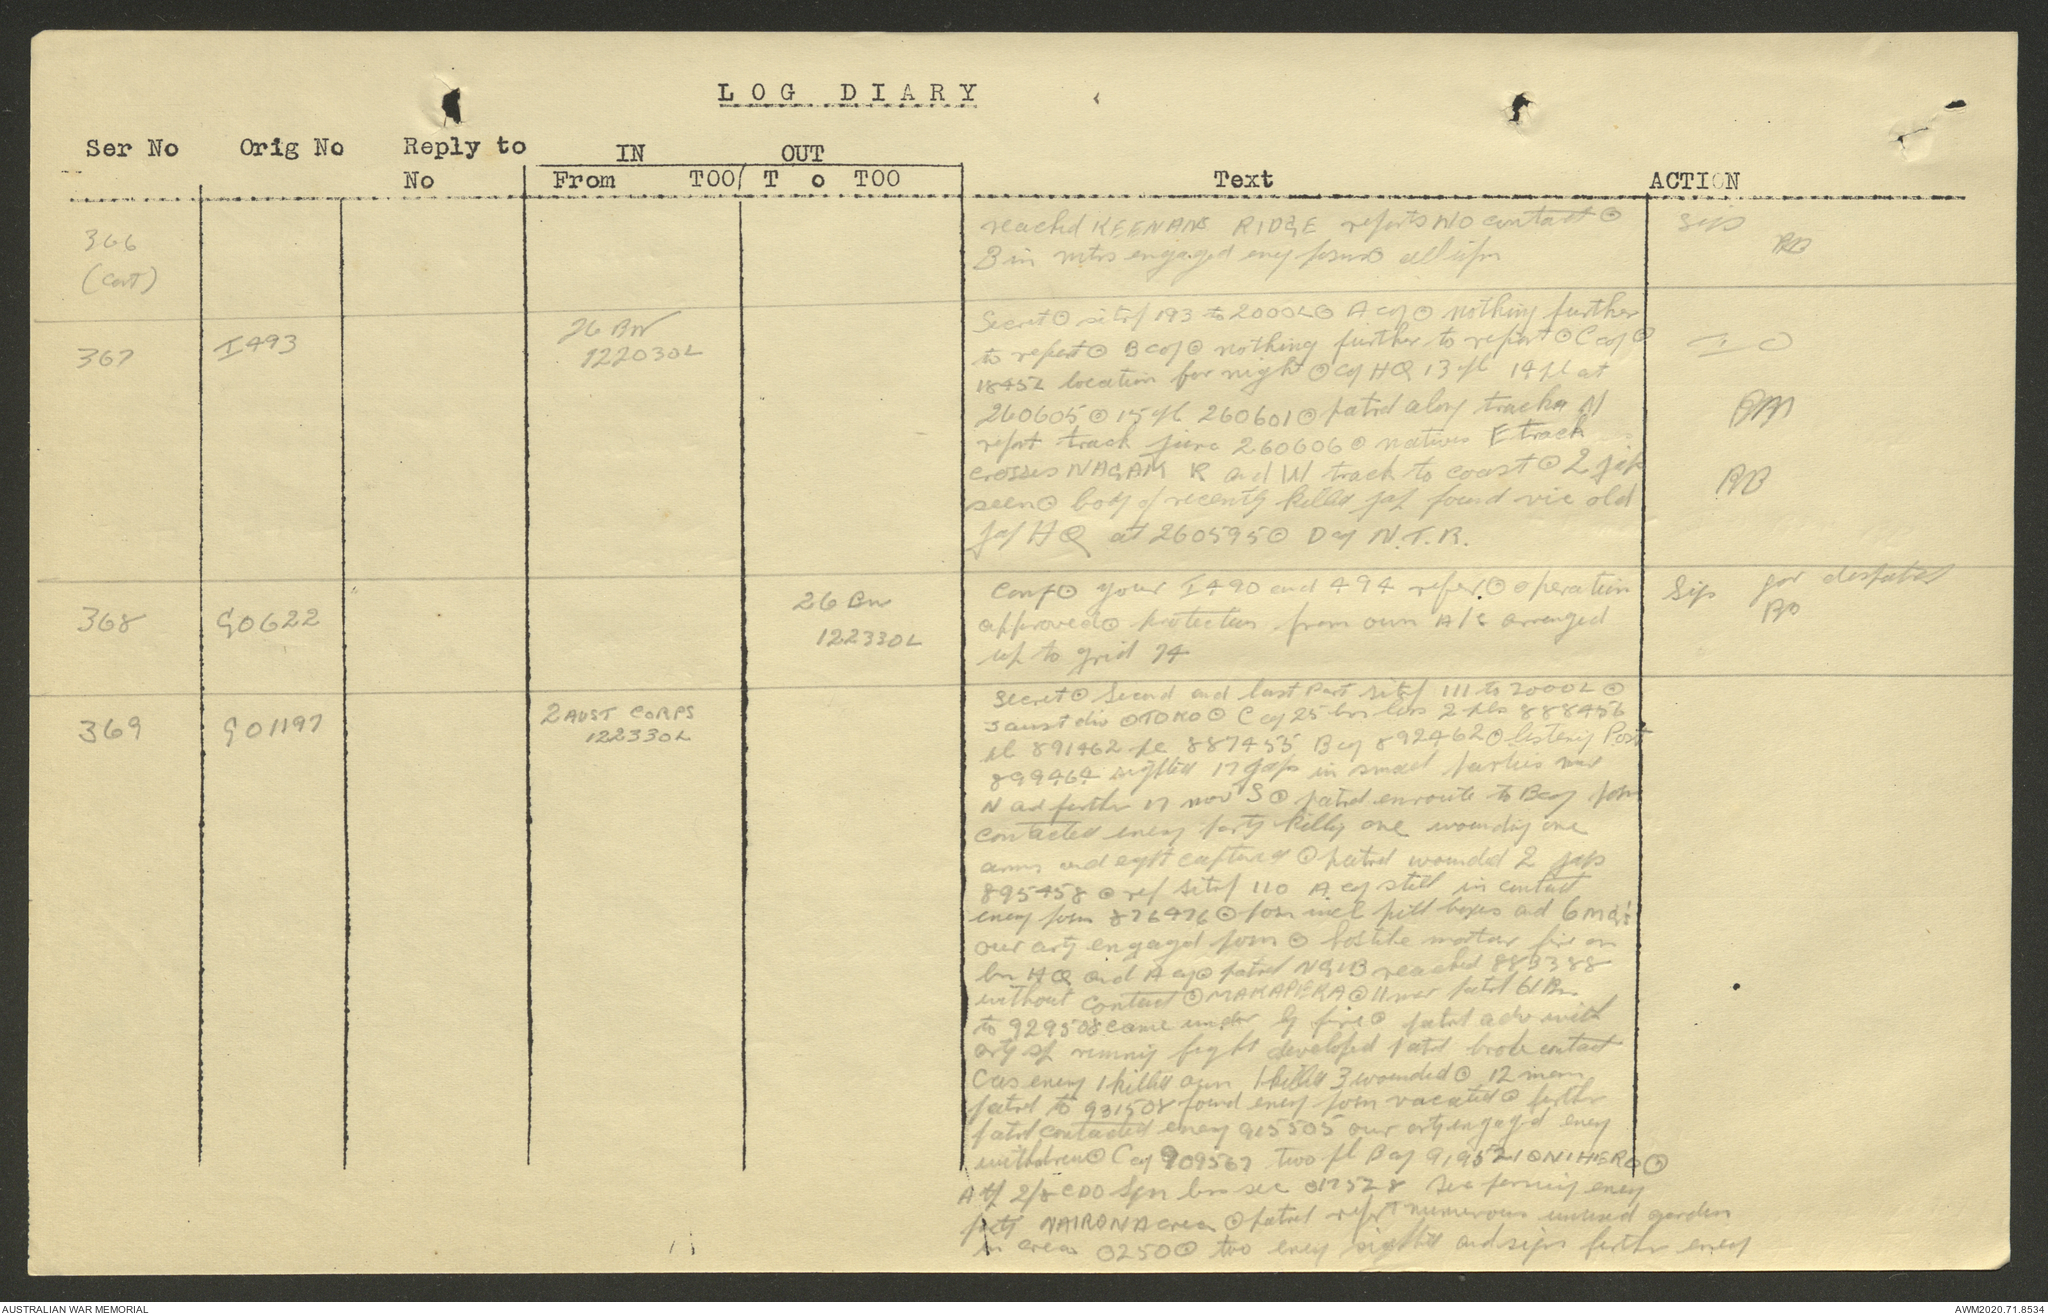 LOG DIARY
Ser No Orig No Reply to No IN From TOO OUT To TOO Text ACTION
366 (Cont)
reached KEENANS RIDGE reports NO contact ⊙ Sigs
B in mtrs engaged eny posns ⊙ all ifm RB
367 I493 26 BN 122030L
Secret ⊙ sitrep 193 to 2000L ⊙ A coy ⊙ nothing further
to report ⊙ B coy ⊙ nothing further to report ⊙ C coy ⊙ IO
1845L location for night ⊙ coy HQ 13 pl 14 pl at
260605 ⊙ 15 pl 260601 ⊙ patrol along tracks N BM
report track junc 260606 ⊙ natives E track
crosses NAGAM R and W track to coast ⊙ 2 japs RB
seen ⊙ body of recently killed jap found vic old
jap HQ at 260595 ⊙ D coy N.T.R.
368 GO622 26 Bn 122330L
Conf ⊙ your I490 and 494 refer ⊙ operation Sigs for despatch
approved ⊙ protection from own A/c arranged RB
up to grid 74
369 GO1197 2 AUST CORPS 122330L
Secret ⊙ Second and last Part sitrep 111 to 2000L ⊙
3 aust div ⊙ TOKO ⊙ C coy 25 bn less 2 pls 888456
pl 891462 pl 887455 B coy 892462 ⊙ listening Post
899464 sighted 17 japs in small parties mov
N and further 17 mov S ⊙ patrol enroute to B coy posn
contacted enemy party killing one wounding one
arms and eqpt captured ⊙ patrol wounded 2 japs
895458 ⊙ ref sitrep 110 A coy still in contact
enemy posn 876476 ⊙ posn incl pill boxes and 6 MGs
our arty engaged posn ⊙ hostile mortar fire on
bn HQ and A coy ⊙ patrol NGIB reached 883388
without contact ⊙ MAKAPEKA ⊙ 11 mar patrol 61 Bn
to 929508 came under fire ⊙ patrol adv with
arty sp running fight developed patrol broke contact
Cas enemy 1 killed own 1 killed 3 wounded ⊙ 12 mar
patrol to 931508 found enemy posn vacated ⊙ further
patrol contacted enemy 915505 our arty engaged enemy
withdrew ⊙ C coy 909567 two pl B coy 919521 ⊙ NIHERO ⊙
A tp 2/8 CDO Sqn less sec 017528 sec
party NAIRONA area ⊙ patrol report numerous unused gardens
in area 0250 ⊙ two enemy sighted and signs further enemy
AUSTRALIAN WAR MEMORIAL AWM2020.71.8534